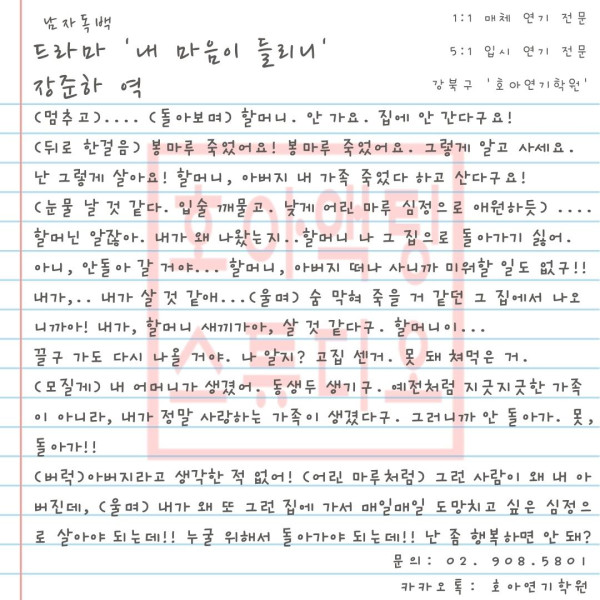 남자독백
1:1 매체 연기 전문
드라마 '내 마음이 들리니'
5:1 입시 연기 전문
장준하 역
강북구 '호아연기학원'
(멈추고).... (돌아보며) 할머니. 안 가요. 집에 안 간다구요!
(뒤로 한걸음) 봉마루 죽었어요! 봉마루 죽었어요. 그렇게 알고 사세요.
난 그렇게 살아요! 할머니, 아버지 내 가족 죽었다 하고 산다구요!
(눈물 날 것 같다. 입술 깨물고. 낮게 어린 마루 심정으로 애원하듯) ....
할머닌 알잖아. 내가 왜 나왔는지..할머니 나 그 집으로 돌아가기 싫어.
아니, 안돌아 갈 거야... 할머니, 아버지 떠나 사니까 미워할 일도 없구!!
내가,.. 내가 살 것 같애...(울며) 숨 막혀 죽을 거 같던 그 집에서 나오
니까아! 내가, 할머니 새끼가아, 살 것 같다구. 할머니이...
끌구 가도 다시 나올 거야. 나 알지? 고집 센거. 못 돼 쳐먹은 거.
(모질게) 내 어머니가 생겼어. 동생두 생기구. 예전처럼 지긋지긋한 가족
이 아니라, 내가 정말 사랑하는 가족이 생겼다구. 그러니까 안 돌아가. 못,
돌아가!!
(버럭)아버지라고 생각한 적 없어! (어린 마루처럼) 그런 사람이 왜 내 아
버진데, (울며) 내가 왜 또 그런 집에 가서 매일매일 도망치고 싶은 심정으
로 살아야 되는데!! 누굴 위해서 돌아가야 되는데!! 난 좀 행복하면 안 돼?
문의: 02. 908.5801
카카오톡: 호아연기학원
호아액팅
스튜디오